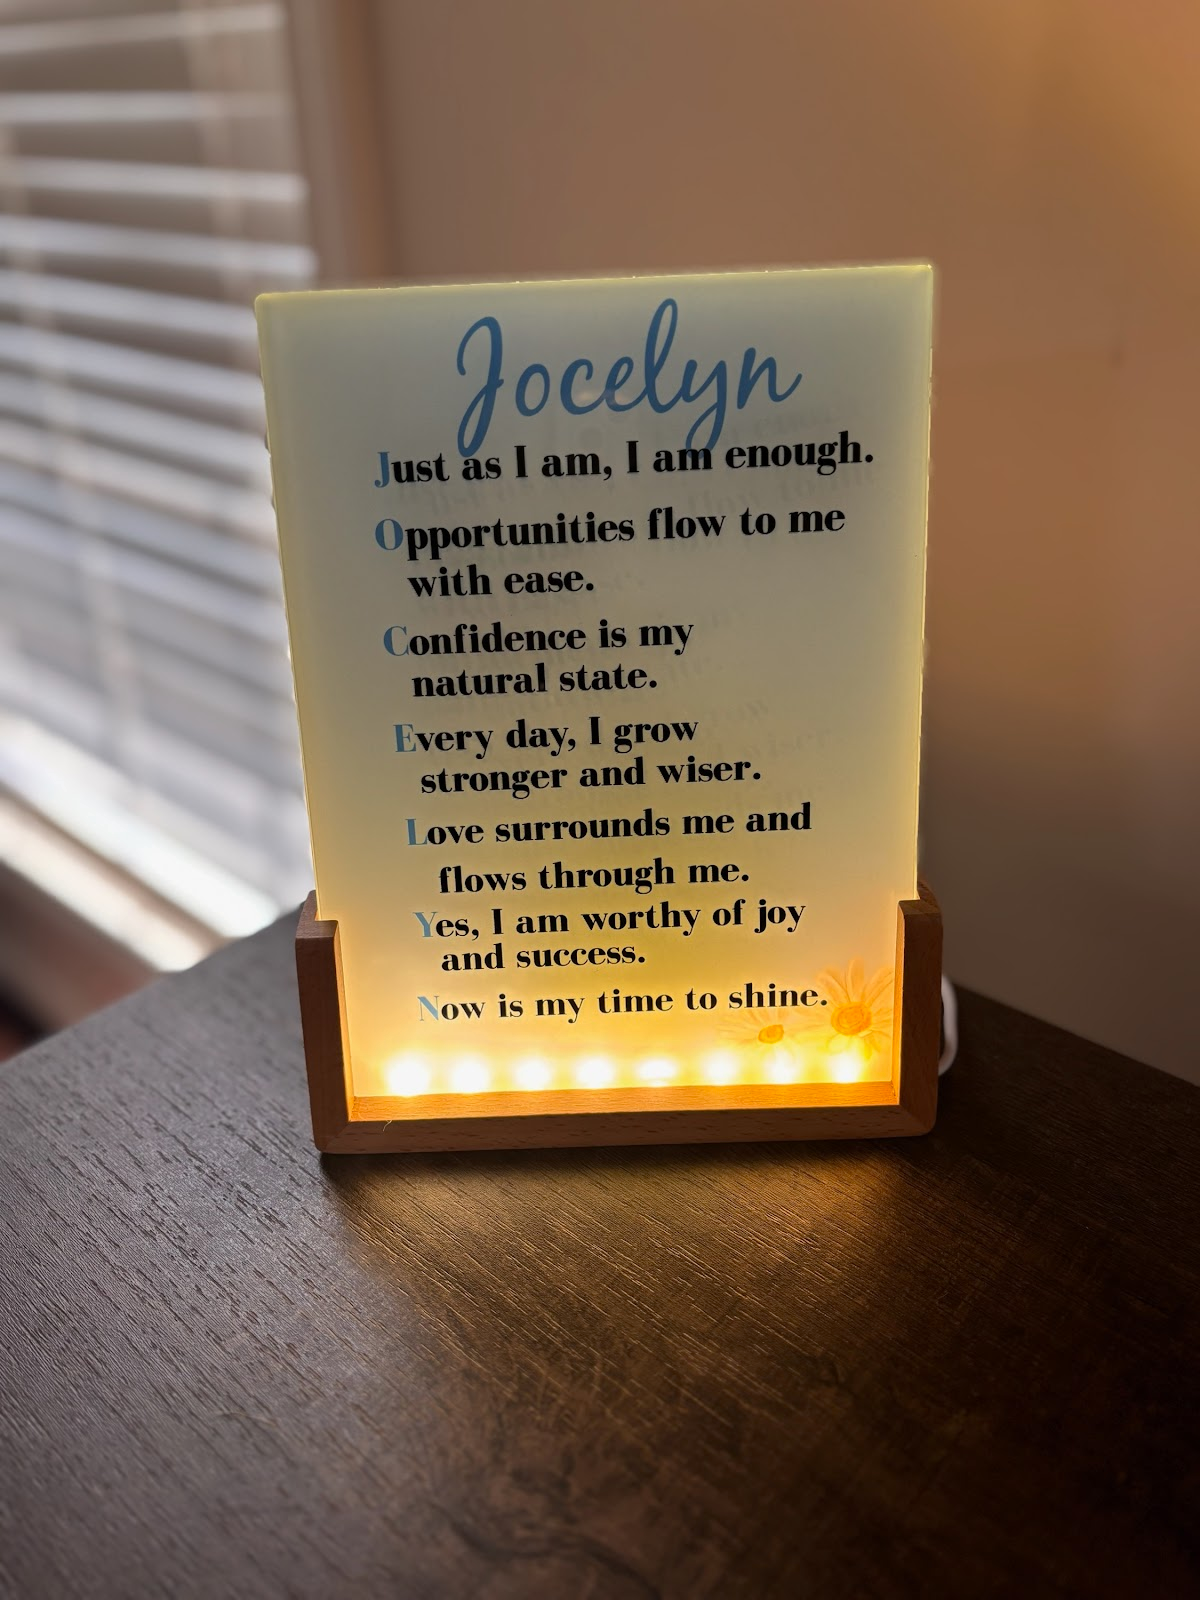 Jocelyn
Just as I am, I am enough.
Opportunities flow to me
with ease.
Confidence is my
natural state.
Every day, I grow
stronger and wiser.
Love surrounds me and
flows through me.
Yes, I am worthy of joy
and success.
Now is my time to shine.